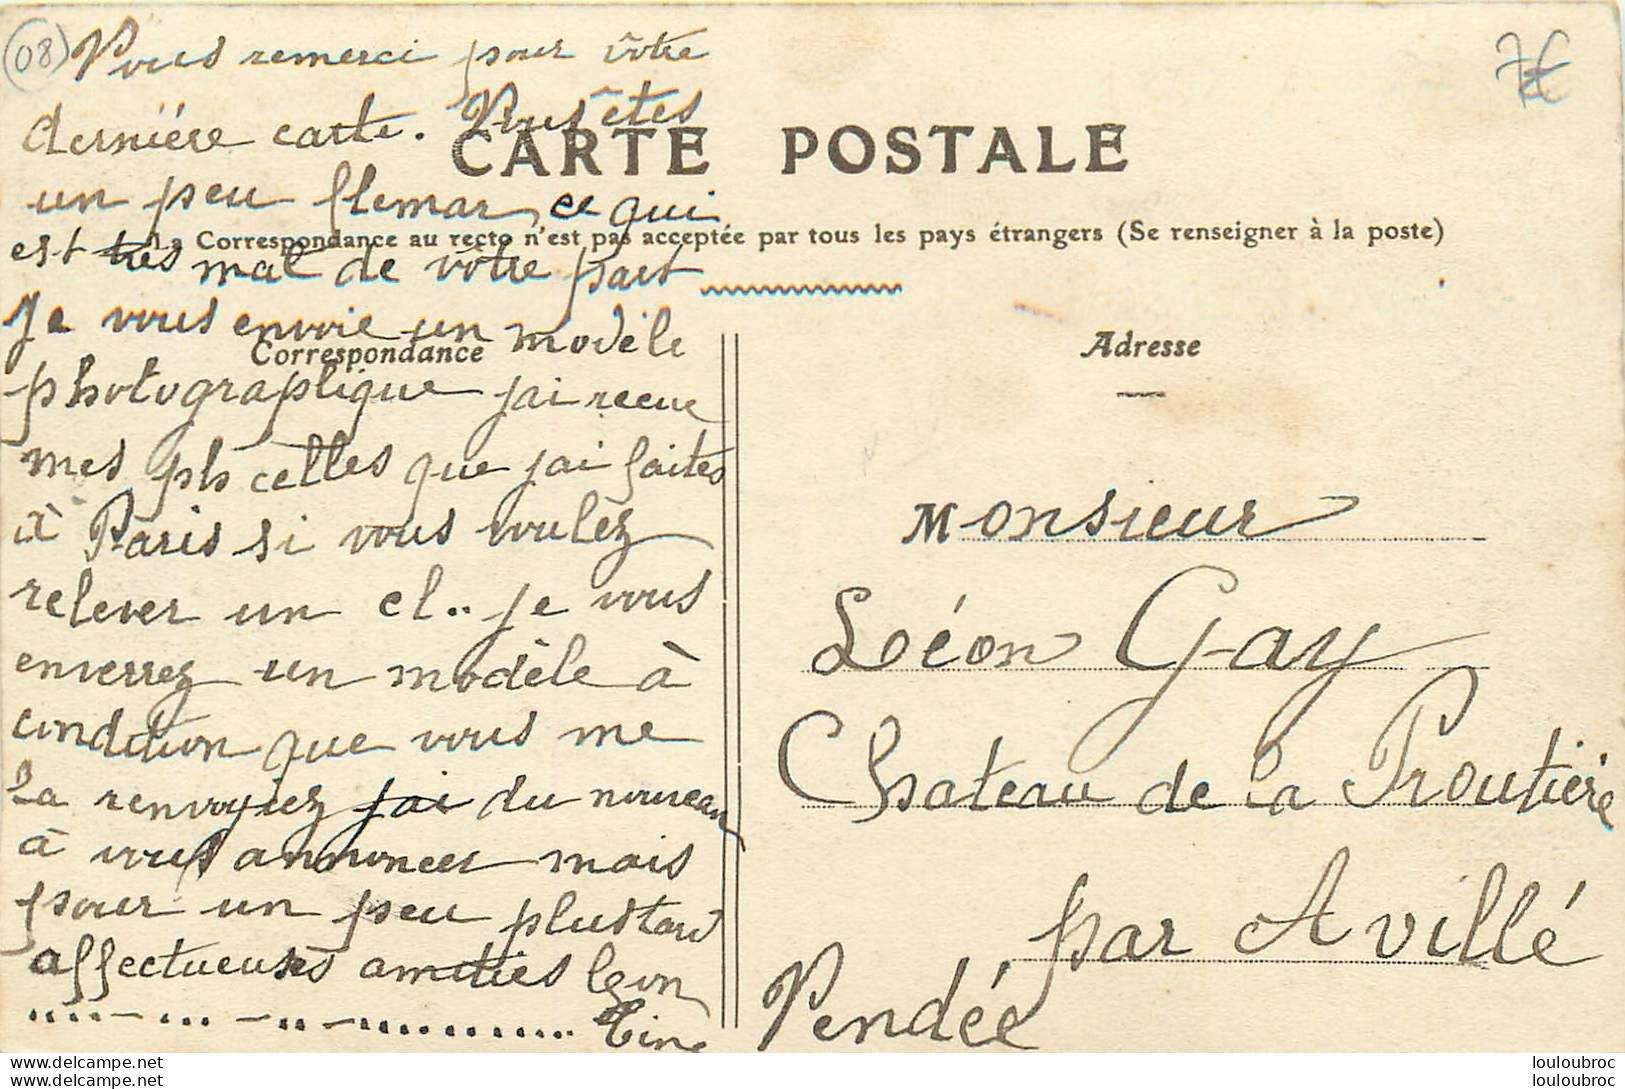 08
7€
Vous remerci pour vôtre
derniére carte. Vous êtes
CARTE POSTALE
un peu flemar, ce qui
La Correspondance au recto n'est pas acceptée par tous les pays étrangers (Se renseigner à la poste)
est très mal de vôtre part
Je vous envoie un modèle
Correspondance
photographique jai recue
mes ph celles que jai faites
à Paris si vous voulez
relever un cl.. je vous
enverrez un modèle à
condition que vous me
la renvoyiez jai du nouveau
à vous annoncer mais
pour un peu plustard
affectueuses amitiés Leon
tine
Adresse
Monsieur
Léon Gay
Chateau de la Proutière
par Avillé
Vendée
louloubroc
louloubroc